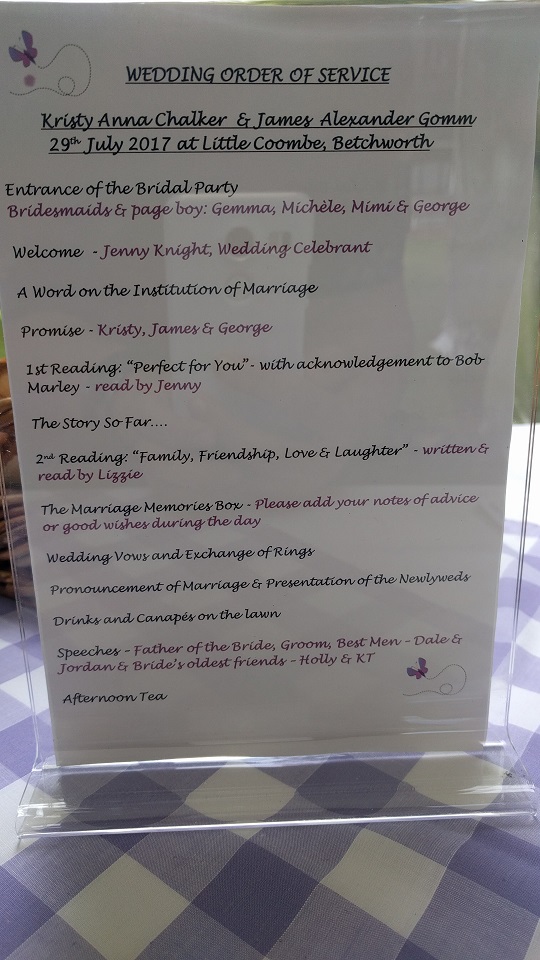 WEDDING ORDER OF SERVICE
Kristy Anna Chalker & James Alexander Gomm
29th July 2017 at Little Coombe, Betchworth
Entrance of the Bridal Party
Bridesmaids & page boy: Gemma, Michèle, Mimi & George
Welcome - Jenny Knight, Wedding Celebrant
A Word on the Institution of Marriage
Promise - Kristy, James & George
1st Reading: “Perfect for You”- with acknowledgement to Bob
Marley - read by Jenny
The Story So Far....
2nd Reading: “Family, Friendship, Love & Laughter” - written &
read by Lizzie
The Marriage Memories Box - Please add your notes of advice
or good wishes during the day
Wedding Vows and Exchange of Rings
Pronouncement of Marriage & Presentation of the Newlyweds
Drinks and Canapés on the lawn
Speeches – Father of the Bride, Groom, Best Men – Dale &
Jordan & Bride’s oldest friends – Holly & KT
Afternoon Tea